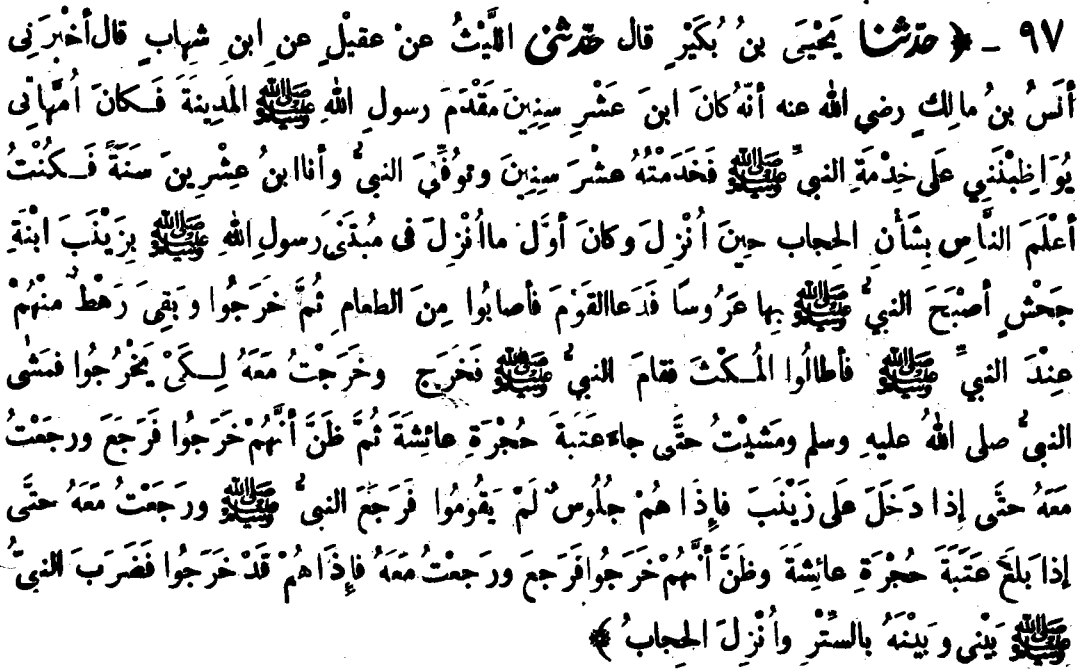 ٩٧ - ﴿ حَدَّثَنَا يَحْيَى بنُ بُكَيْرٍ قال حَدَّثَنِي اللَّيْثُ عنْ عقيْلٍ عنِ ابنِ شِهابٍ قال أخْبَرَنِى
أنَسُ بنُ مالِكٍ رضي الله عنه أنَّهُ كانَ ابنَ عَشْرِ سِنِينَ مَقْدَمَ رسولِ اللهِ ﷺ المَدِينَةَ فَكانَ أُمَّهاتِى
يُوَاظِبْنَنِي عَلى خِدْمَةِ النبيِّ ﷺ فَخَدَمْتُهُ عشْرَ سِنِينَ وتُوُفِّيَ النبيُّ وأنا ابنُ عِشْرِينَ سَنَةً فَكُنْتُ
أعْلَمَ النَّاسِ بِشَأْنِ الحِجاب حِينَ أُنْزِلَ وكانَ أوَّلَ ما أُنْزِلَ فى مُبْتَنَى رسولِ اللهِ ﷺ بِزَيْنَبَ ابْنَةِ
جَحْشٍ أصْبَحَ النبيُّ ﷺ بِها عَرُوسًا فَدَعا القَوْمَ فأصابُوا مِنَ الطعامِ ثُمَّ خرَجُوا وبَقِىَ رَهْطٌ منْهُمْ
عِنْدَ النبيِّ ﷺ فأطالُوا المُكْثَ فقامَ النبيُّ ﷺ فَخَرَج وخَرَجْتُ مَعَهُ لِكَىْ يَخْرُجُوا فمَشٰى
النبيُّ صلى اللهُ عليهِ وسلم ومَشَيْتُ حتَّى جاء عَتَبةَ حُجْرَةِ عائِشَةَ ثُمَّ ظَنَّ أنَّهُمْ خَرَجُوا فَرَجَعَ ورجَعْتُ
مَعَهُ حتَّى إذا دَخَلَ عَلى زَيْنَبَ فإِذَا هُمْ جُلُوسٌ لَمْ يَقُومُوا فَرَجَعَ النبىُّ ﷺ ورَجَعْتُ مَعَهُ حتَّى
إذا بَلَغَ عَتَبَةَ حُجْرَةِ عائِشَةَ وظَنَّ أنَّهُمْ خَرَجُوا فَرَجعَ ورَجعْتُ مَعَهُ فإِذَا هُمْ قَدْ خَرَجُوا فَضَرَبَ النبيُّ
ﷺ بَيْنِى وبَيْنَهُ بالسِّتْرِ وأُنْزِلَ الحِجابُ ﴾